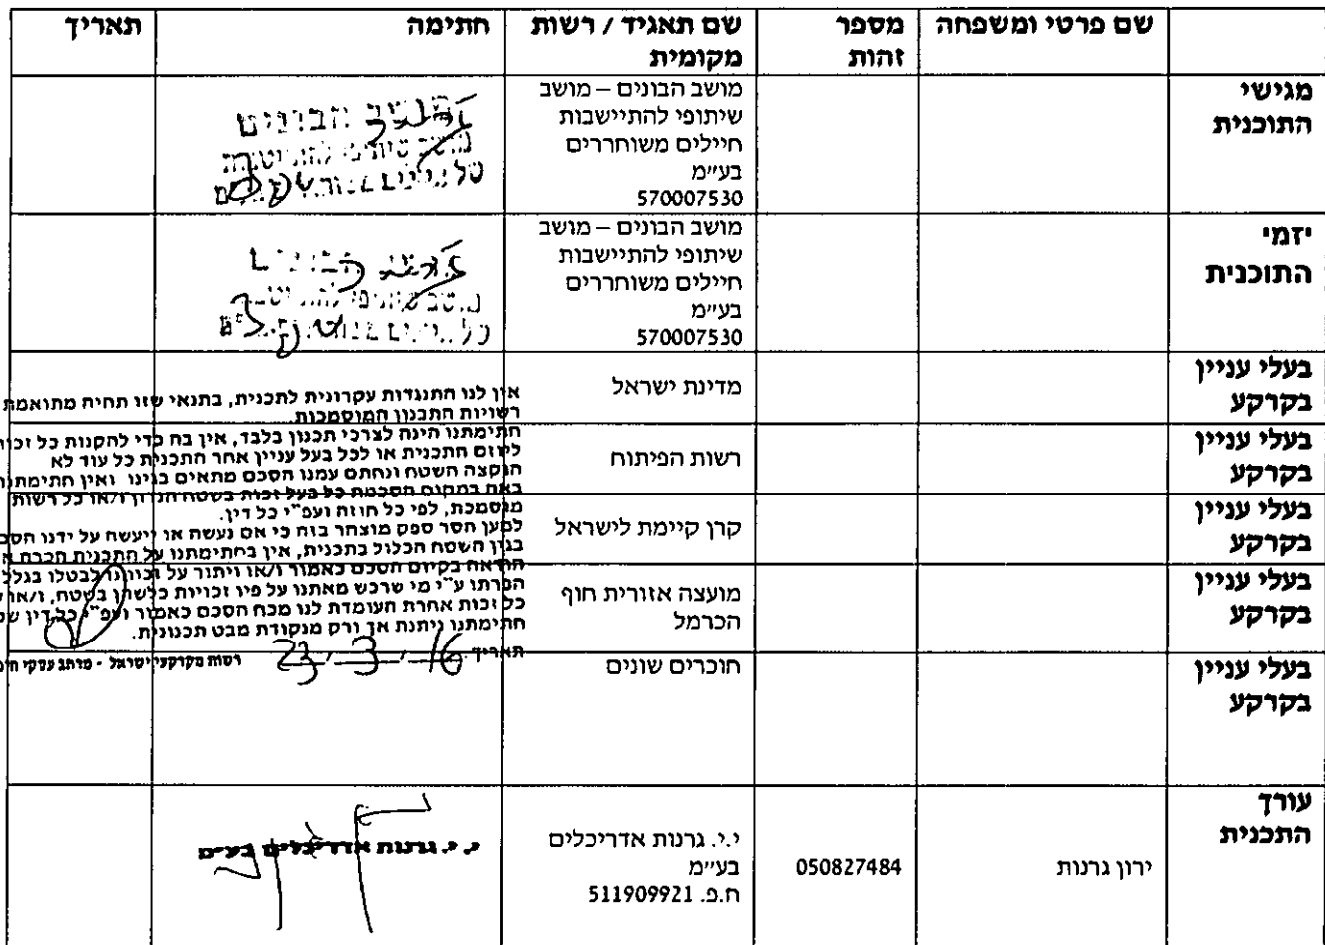 שם פרטי ומשפחה
מספר זהות
שם תאגיד / רשות מקומית
חתימה
תאריך
מגישי התוכנית
מושב הבונים – מושב
שיתופי להתיישבות
חיילים משוחררים
בע״מ
570007530
יזמי התוכנית
מושב הבונים – מושב
שיתופי להתיישבות
חיילים משוחררים
בע״מ
570007530
בעלי עניין בקרקע
מדינת ישראל
בעלי עניין בקרקע
רשות הפיתוח
בעלי עניין בקרקע
קרן קיימת לישראל
בעלי עניין בקרקע
מועצה אזורית חוף
הכרמל
בעלי עניין בקרקע
חוכרים שונים
אין לנו התנגדות עקרונית לתכנית, בתנאי שזו תהיה מתואמת
רשויות התכנון המוסמכות
חתימתנו הינה לצרכי תכנון בלבד, אין בה כדי להקנות כל זכות
ליוזם התכנית או לכל בעל עניין אחר התכנית כל עוד לא
הוקצה השטח ונחתם עמנו הסכם מתאים בגינו ואין חתימתנו
באה במקום הסכמת כל בעל זכות בשטח הנדון ו/או כל רשות
מוסמכת, לפי כל חוזה ועפ״י כל דין.
למען הסר ספק מוצהר בזה כי אם נעשה או ייעשה על ידנו הסכם
בגין השטח הכלול בתכנית, אין בחתימתנו על התכנית הכרה
הודאה בקיום הסכם כאמור ו/או ויתור על זכותנו לבטלו בגלל
הפרתו ע״י מי שרכש מאתנו על פיו זכויות כלשהן בשטח, ו/או
כל זכות אחרת העומדת לנו מכח הסכם כאמור ועפ״י כל דין
חתימתנו ניתנת אך ורק מנקודת מבט תכנונית.
תאריך 23.3.16
רשות מקרקעי ישראל - מרחב עסקי
עורך התכנית
ירון גרנות
050827484
י.י. גרנות אדריכלים
בע״מ
ח.פ. 511909921
י.י. גרנות אדריכלים בע״מ